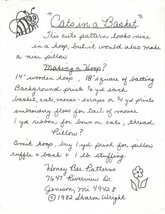 "Cats in a Basket"
This cute pattern looks nice
in a hoop, but it would also make
a nice pillow
Making a Hoop?
14" wooden hoop, 18" square of batting
Background print ½ yd each
basket, cats, mouse - scraps or ¼ yd prints
embroidery floss for tail of mouse
1 yd ribbon for bow on cats, thread
Pillow?
Omit hoop, buy 1 yd print for pillow
ruffle & back & 1 lb stuffing.
Honey Bee Patterns
7649 Riverview Dr.
Jenison, MI 49428
© 1982 Sharon Wright